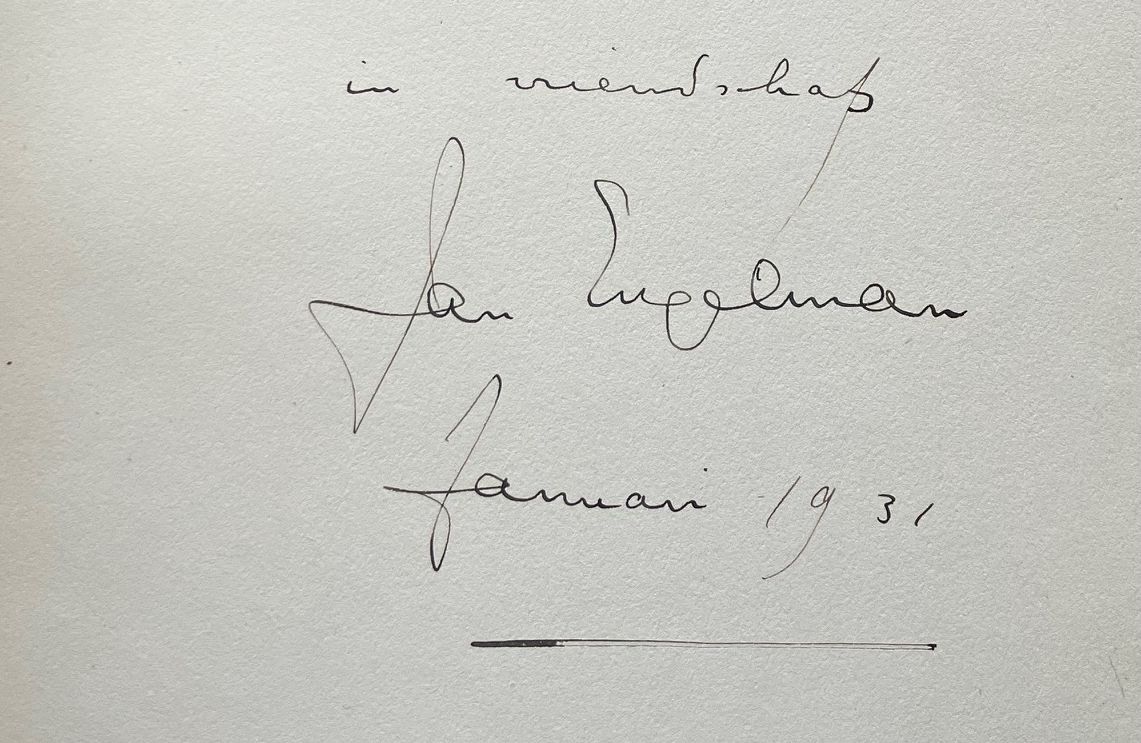 in vriendschap
Jan Engelman
Januari 1931